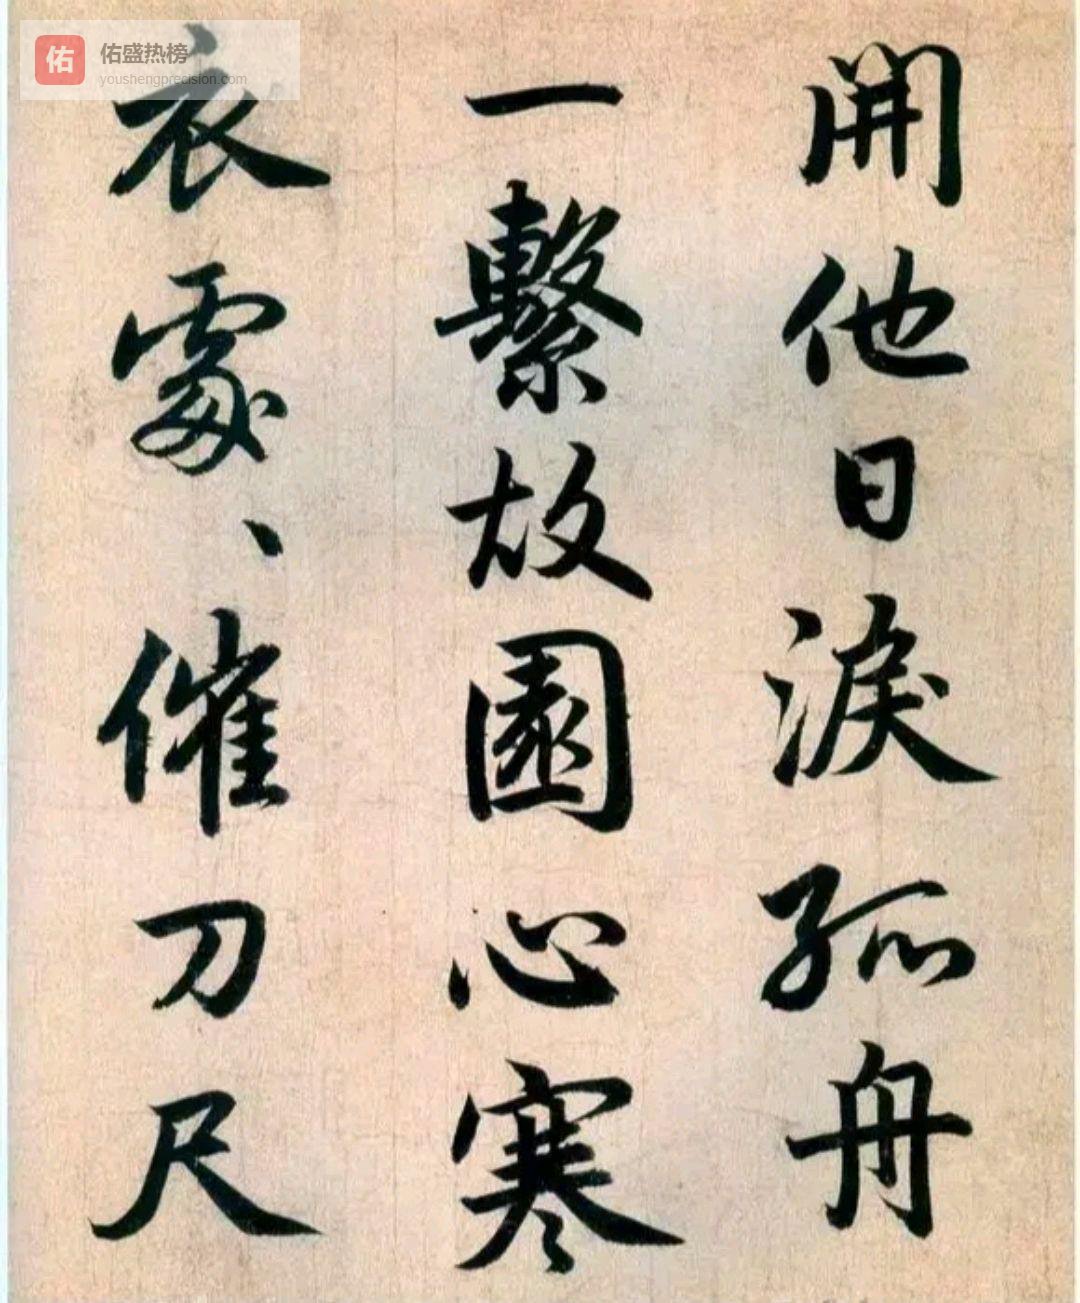 佑
佑盛热榜
youshengprecision.com
開他日淚孤舟
一繫故園心寒
衣處、催刀尺